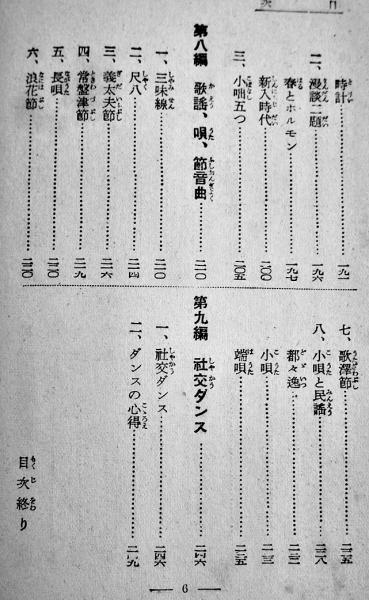 目次
時計……一九一
二、漫談二題……一九六
春とホルモン……一九七
新入時代……二〇〇
三、小咄五つ……二〇五
第八編 歌謡、唄、節音曲……二一〇
一、三味線……二一〇
二、尺八……二一四
三、義太夫節……二一六
四、常盤津節……二一九
五、長唄……二二〇
六、浪花節……二二〇
七、歌澤節……二二五
八、小唄と民謡……二二八
都々逸……
小唄……
端唄……二三五
第九編 社交ダンス……二四六
一、社交ダンス……二四六
二、ダンスの心得……二四九
目次終り
— 6 —